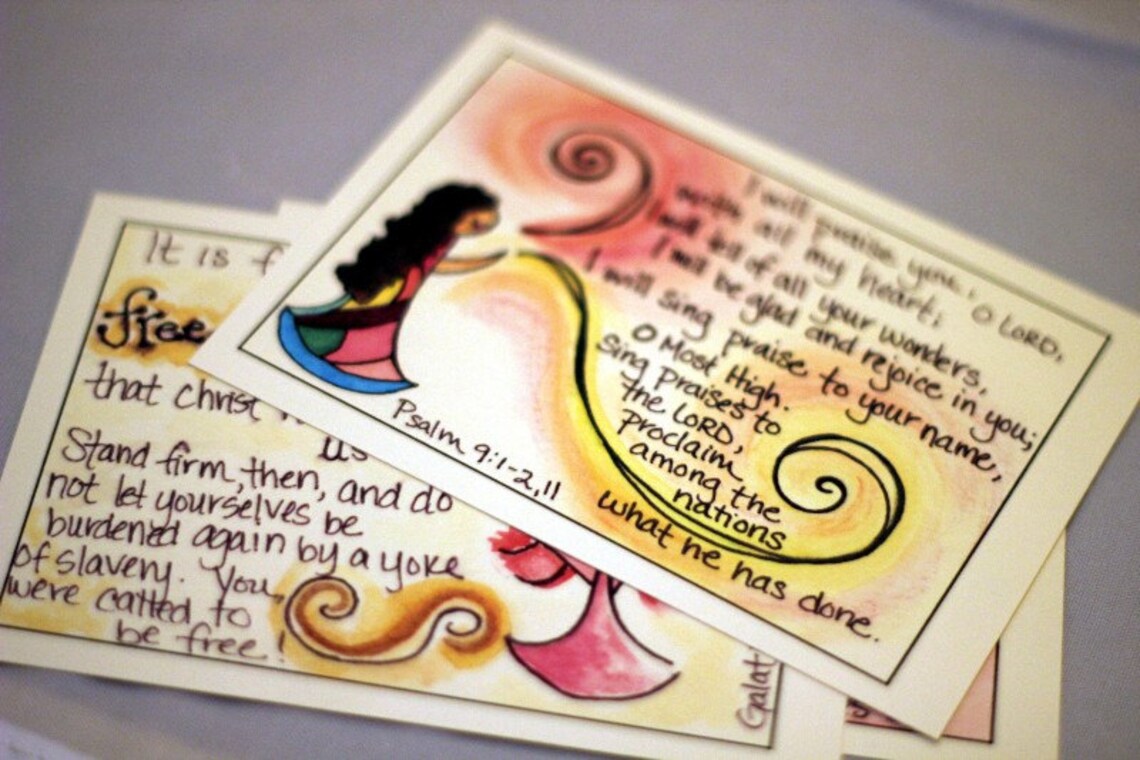 I will praise you, O LORD,
with all my heart;
will tell of all your wonders,
I will be glad and rejoice in you;
I will sing praise to your name,
O Most High.
Sing Praises to
the LORD,
proclaim
among the
nations
what he has done.
Psalm 9:1-2,11
It is f
free
that Christ
us
Stand firm, then, and do
not let yourselves be
burdened again by a yoke
of slavery. You
were called to
be free!
Galat